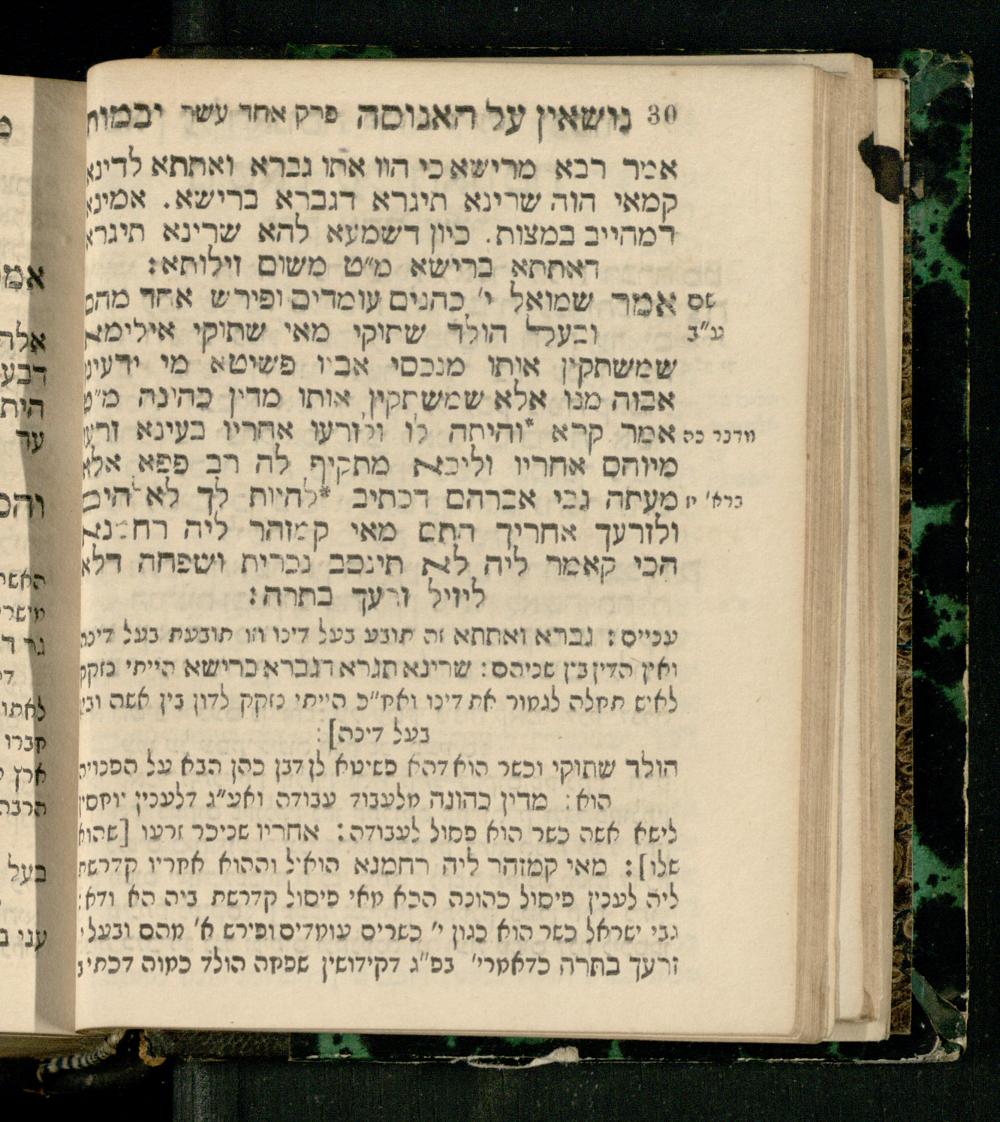 30 נושאין על האנוסה פרק אחד עשר יבמות
אמר רבא מרישא כי הוו אתו גברא ואתתא לדינא
קמאי הוה שרינא תיגרא דגברא ברישא. אמינא
דמהייב במצות. כיון דשמעא להא שרינא תיגרא
דאתתא ברישא מ״ט משום זילותא:
שם אמר שמואל י׳ כהנים עומדים ופירש אחד מהם
ע״ב ובעל הולד שתוקי מאי שתוקי אילימא
שמשתקין אותו מנכסי אביו פשיטא מי ידעינן
אבוה מנו אלא שמשתקין אותו מדין כהינה מ״ט
מדבר כה אמר קרא *והיתה לו ולזרעו אחריו בעינא זרעו
מיוחם אחריו וליכא מתקיף לה רב פפא אלא
ברא׳ יז מעתה גבי אברהם דכתיב *להיות לך לאלהים
ולזרעך אחריך התם מאי קמזהר ליה רחמנא
הכי קאמר ליה לא תינסב נכרית ושפחה דלא
ליזיל זרעך בתרה:
ענייס: גברא ואתתא זה תובע בעל דינו וזו תובעת בעל דינה
ואין הדין בין שניהם: שרינא תגרא דגברא ברישא הייתי נזקק
לאיש תחלה לגמור את דינו ואח״כ הייתי נזקק לדון בין אשה ובין
בעל דינה]:
הולד שתוקי וכשר הוא דהא פשיטא לן דבן כהן הבא על הפנויה
הוא: מדין כהונה מלעבוד עבודה ואע״ג דלענין יוחסין
לישא אשה כשר הוא פסול לעבודה: אחריו שניכר זרעו [שהוא
שלו]: מאי קמזהר ליה רחמנא הואיל וההוא אחריו קדרשת
ליה לענין פיסול כהונה הכא מאי פיסול קדרשת ביה הא ודאי
גבי ישראל כשר הוא כגון י׳ כשרים עומדים ופירש א׳ מהם ובעל:
זרעך בתרה כדאמרי׳ בפ״ג דקידושין שפחה הולד כמוה דכתיב